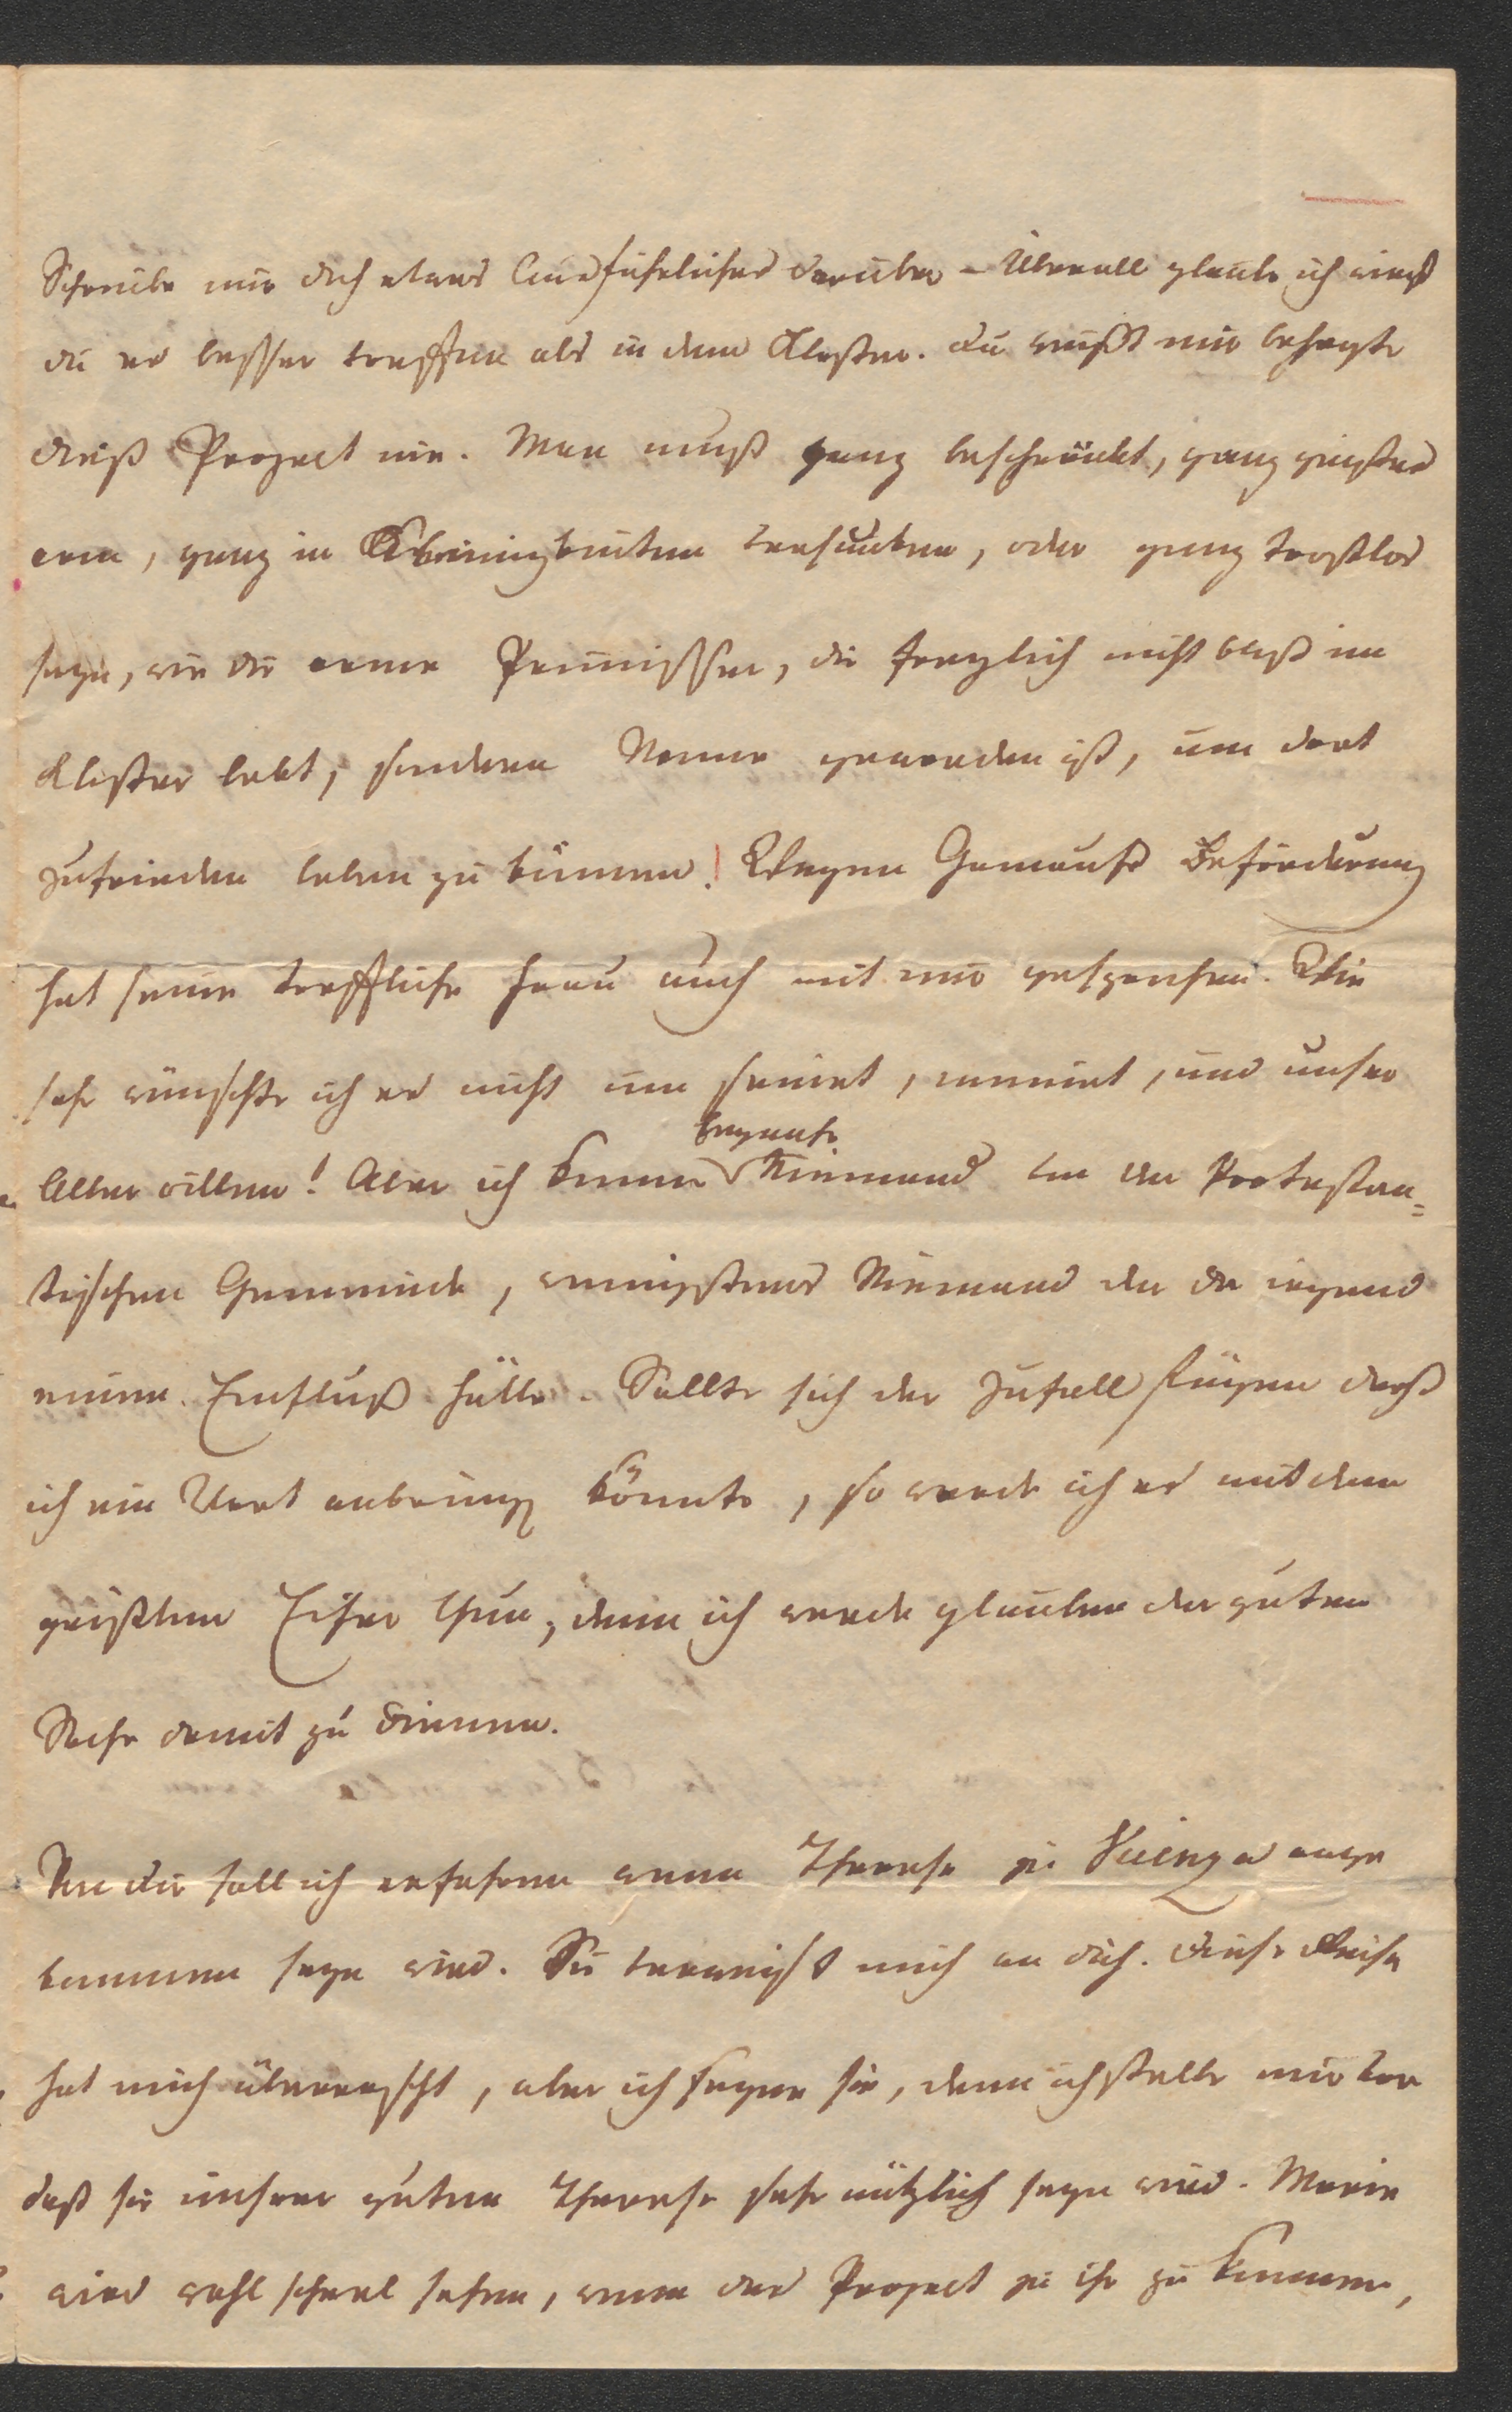 Schreibe mir doch etwas Ausführliches darüber – Überall glaube ich wirst
du es besser treffen als in dem Kloster. Du weißt mir behagte
dieß Project nie. Man muß ganz beschränkt, ganz geistes
arm, ganz in Kleinigkeiten versunken, oder ganz trostlos
seyn, wie die arme, die freylich nicht bloß im
Kloster lebt, sondern Nonne geworden ist, um dort
zufrieden leben zu können! Wegen Beförderung
hat seine treffliche Frau auch mit mir gesprochen. Wie
sehr wünschte ich es nicht um seinet, und unser
Aller willen! Aber ich kenne Niemand von der Protestan=
tischen Gemeinde, wenigstens Niemand der da irgend
einen Einfluß hätte. Sollte sich der Zufall fügen daß
ich ein Wort anbringen könnte, so werde ich es mit dem
größten Eifer thun, denn ich werde glauben der guten
Sache damit zu dienen.
Von dir soll ich erfahren wenn Therese zu ange
kommen seyn wird. Sie verweist mich an dich. Diese Reise
hat mich überrascht, aber ich segne sie, denn ich stelle mir vor
daß sie unserer guten Therese sehr nützlich seyn wird. Marie
wird wohl scheel sehen, wenn das Project zu ihr zu kommen,